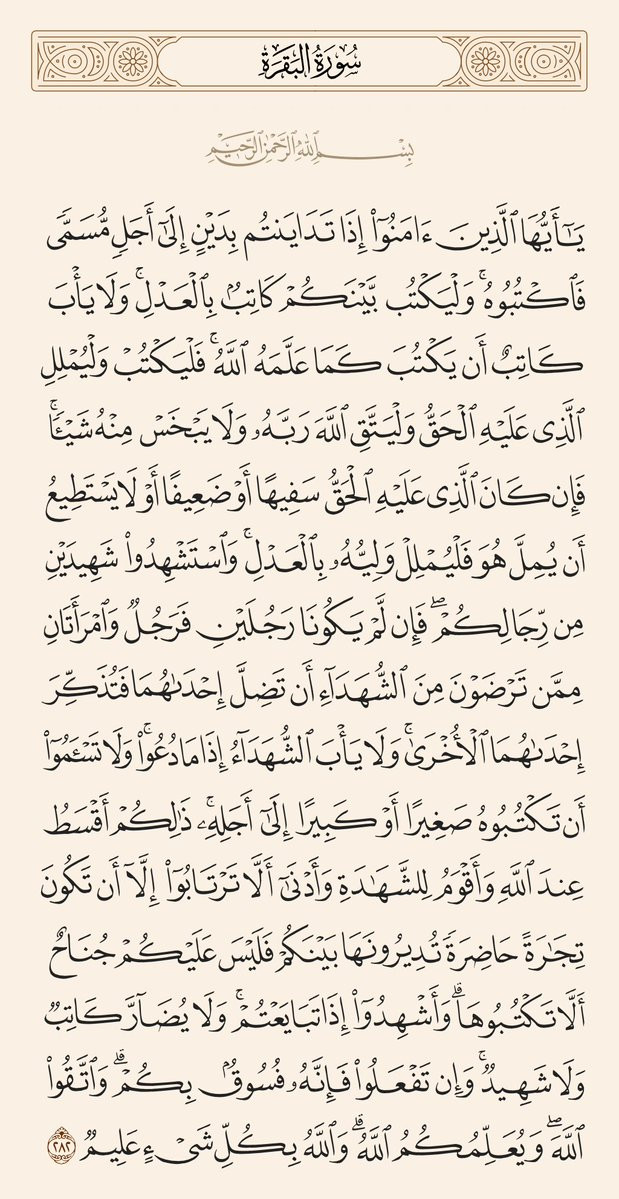 سُورَةُ البَقَرَةِ
بِسْمِ ٱللَّهِ ٱلرَّحْمَٰنِ ٱلرَّحِيمِ
يَٰٓأَيُّهَا ٱلَّذِينَ ءَامَنُوٓا۟ إِذَا تَدَايَنتُم بِدَيْنٍ إِلَىٰٓ أَجَلٍ مُّسَمًّى
فَٱكْتُبُوهُ ۚ وَلْيَكْتُب بَّيْنَكُمْ كَاتِبٌۢ بِٱلْعَدْلِ ۚ وَلَا يَأْبَ
كَاتِبٌ أَن يَكْتُبَ كَمَا عَلَّمَهُ ٱللَّهُ ۚ فَلْيَكْتُبْ وَلْيُمْلِلِ
ٱلَّذِى عَلَيْهِ ٱلْحَقُّ وَلْيَتَّقِ ٱللَّهَ رَبَّهُۥ وَلَا يَبْخَسْ مِنْهُ شَيْـًٔا ۚ
فَإِن كَانَ ٱلَّذِى عَلَيْهِ ٱلْحَقُّ سَفِيهًا أَوْ ضَعِيفًا أَوْ لَا يَسْتَطِيعُ
أَن يُمِلَّ هُوَ فَلْيُمْلِلْ وَلِيُّهُۥ بِٱلْعَدْلِ ۚ وَٱسْتَشْهِدُوا۟ شَهِيدَيْنِ
مِن رِّجَالِكُمْ ۖ فَإِن لَّمْ يَكُونَا رَجُلَيْنِ فَرَجُلٌ وَٱمْرَأَتَانِ
مِمَّن تَرْضَوْنَ مِنَ ٱلشُّهَدَآءِ أَن تَضِلَّ إِحْدَىٰهُمَا فَتُذَكِّرَ
إِحْدَىٰهُمَا ٱلْأُخْرَىٰ ۚ وَلَا يَأْبَ ٱلشُّهَدَآءُ إِذَا مَا دُعُوا۟ ۚ وَلَا تَسْـَٔمُوٓا۟
أَن تَكْتُبُوهُ صَغِيرًا أَوْ كَبِيرًا إِلَىٰٓ أَجَلِهِۦ ۚ ذَٰلِكُمْ أَقْسَطُ
عِندَ ٱللَّهِ وَأَقْوَمُ لِلشَّهَٰدَةِ وَأَدْنَىٰٓ أَلَّا تَرْتَابُوٓا۟ إِلَّآ أَن تَكُونَ
تِجَٰرَةً حَاضِرَةً تُدِيرُونَهَا بَيْنَكُمْ فَلَيْسَ عَلَيْكُمْ جُنَاحٌ
أَلَّا تَكْتُبُوهَا ۗ وَأَشْهِدُوٓا۟ إِذَا تَبَايَعْتُمْ ۚ وَلَا يُضَآرَّ كَاتِبٌ
وَلَا شَهِيدٌ ۚ وَإِن تَفْعَلُوا۟ فَإِنَّهُۥ فُسُوقٌۢ بِكُمْ ۗ وَٱتَّقُوا۟
ٱللَّهَ ۖ وَيُعَلِّمُكُمُ ٱللَّهُ ۗ وَٱللَّهُ بِكُلِّ شَىْءٍ عَلِيمٌ ٢٨٢